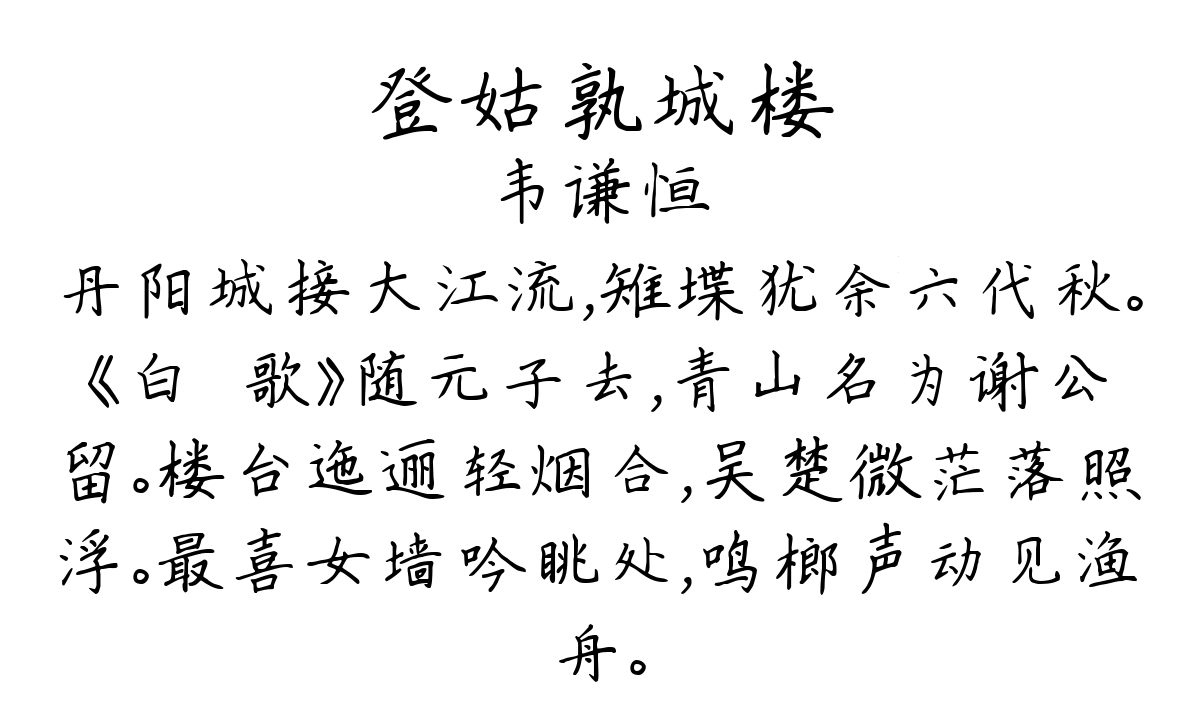 登姑孰城楼
韦谦恒
丹阳城接大江流,雉堞犹余六代秋。
《白 歌》随元子去,青山名为谢公
留。楼台迤逦轻烟合,吴楚微茫落照
浮。最喜女墙吟眺处,鸣榔声动见渔
舟。